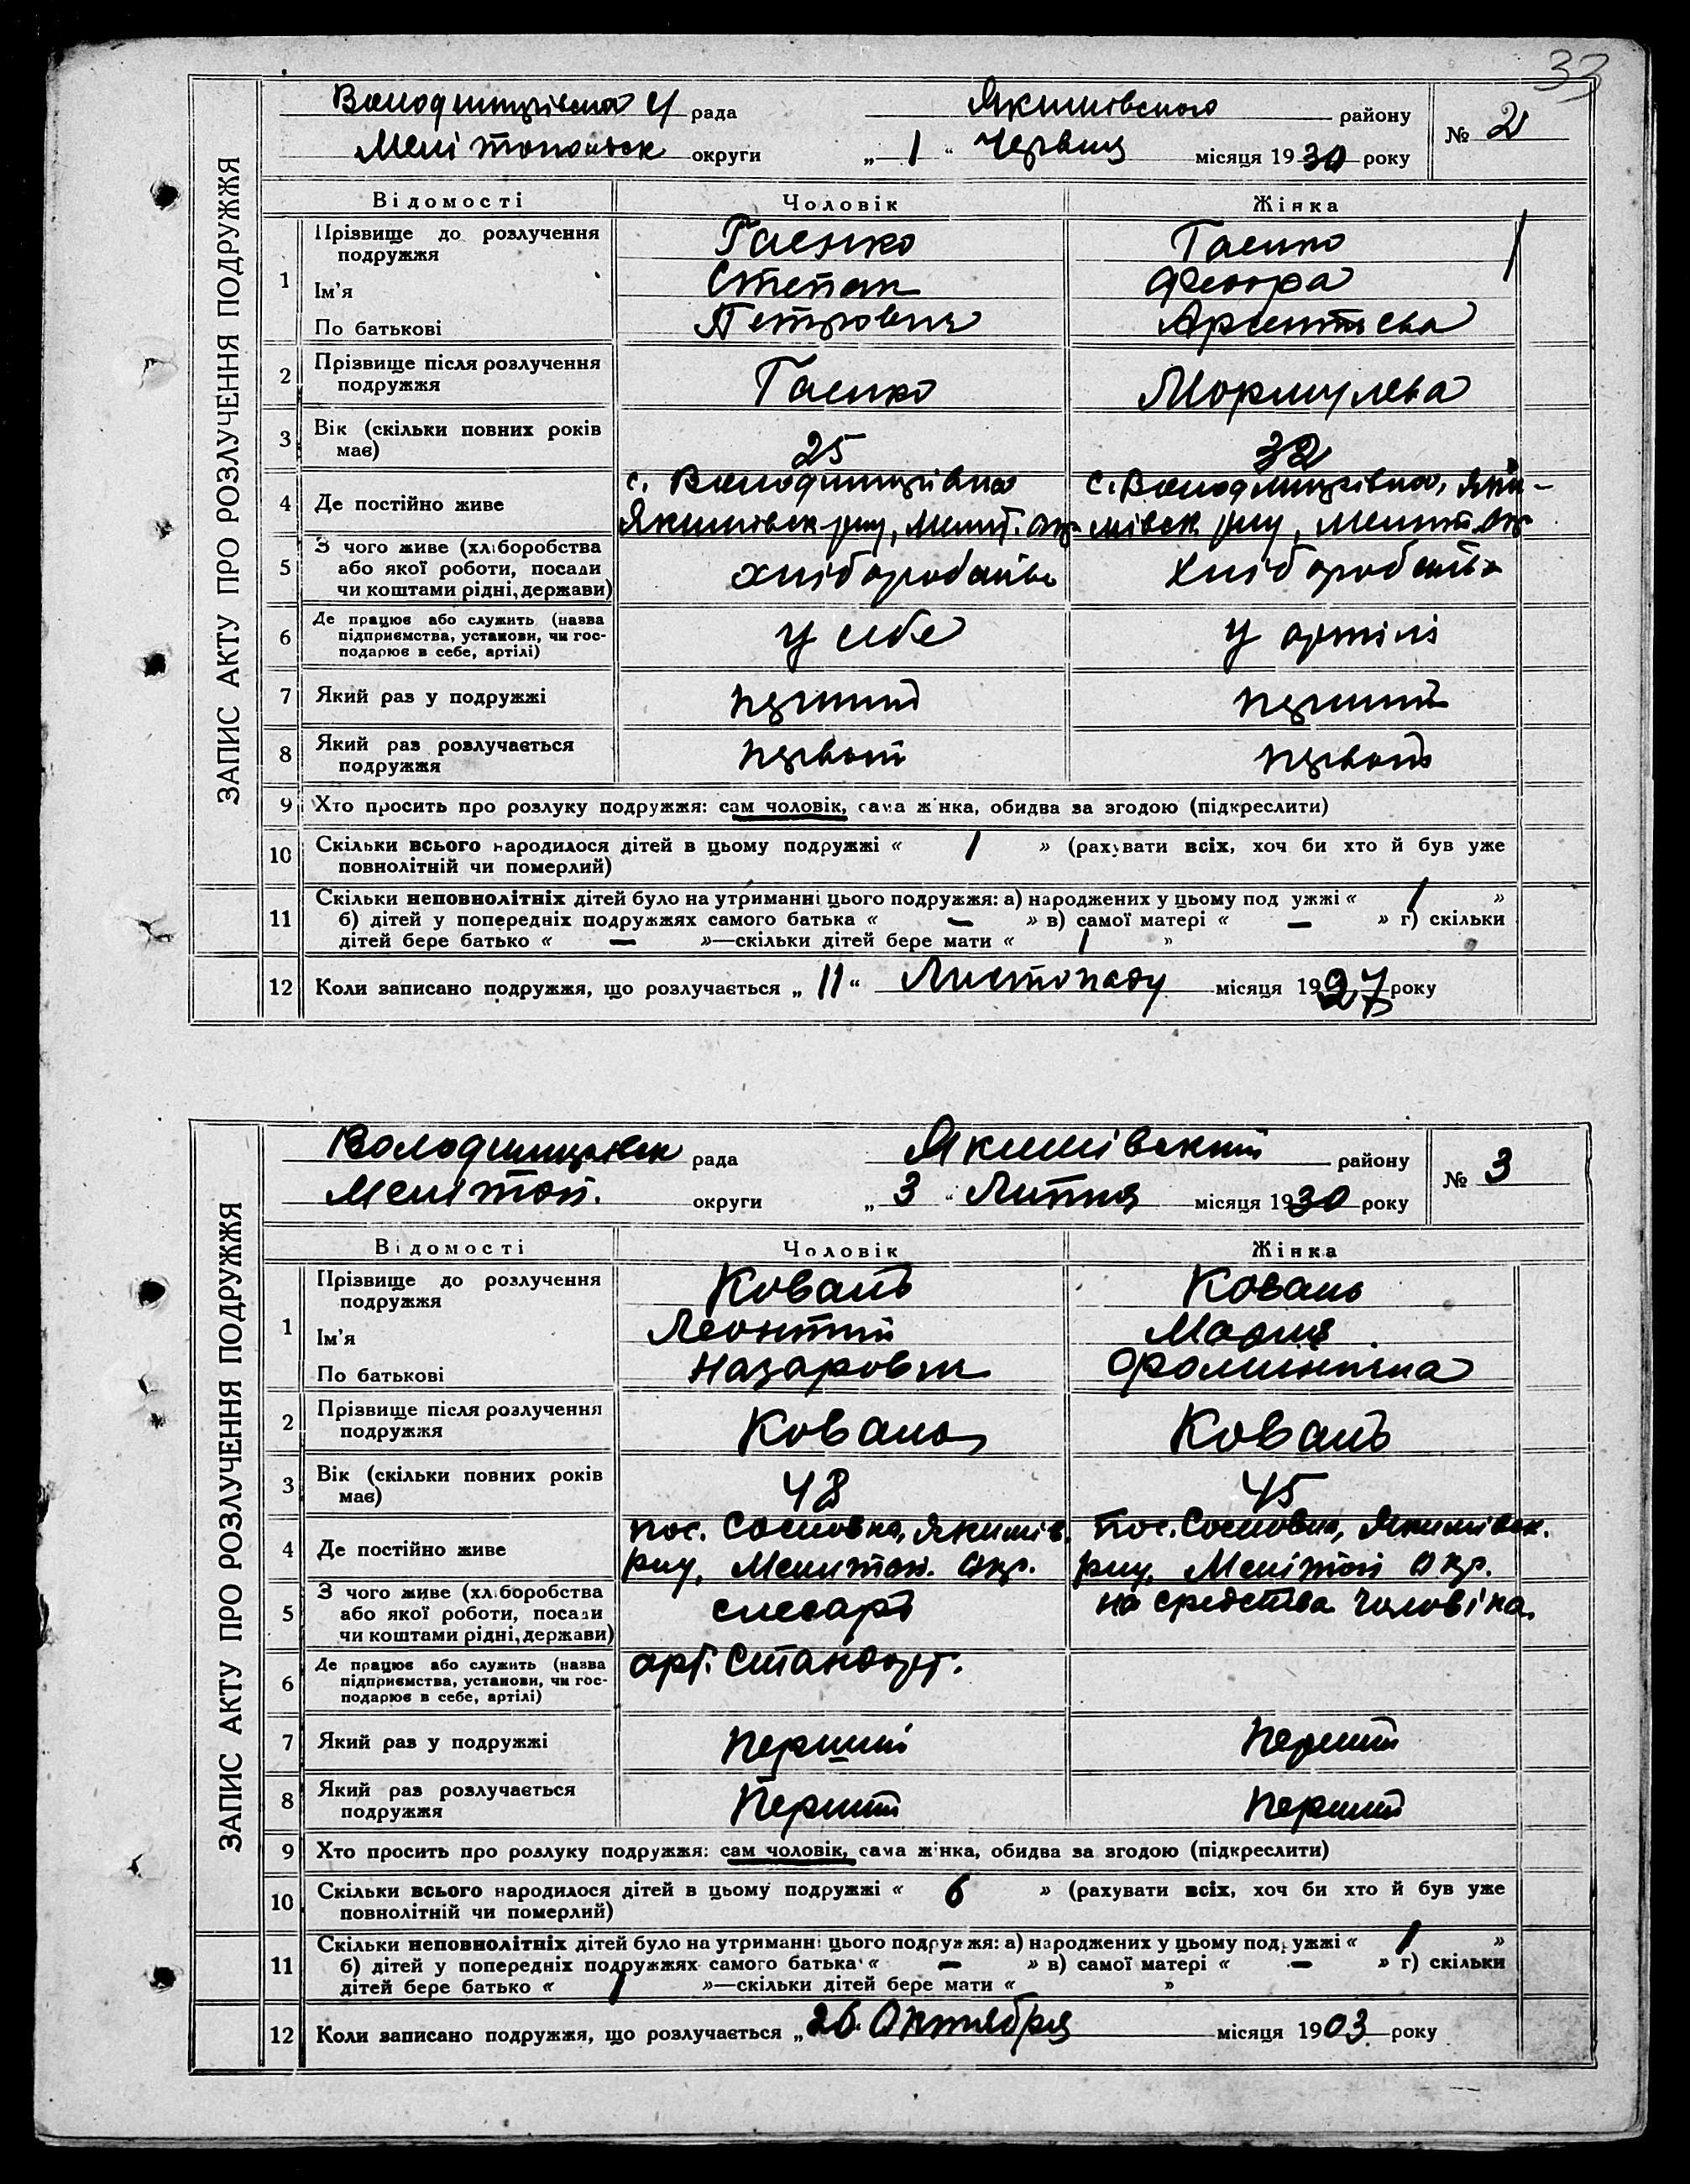 33
ЗАПИС АКТУ ПРО РОЗЛУЧЕННЯ ПОДРУЖЖЯ
рада Якимівського району № 2
округи „ 1 “ Червня місяця 1930 року
Відомості Чоловік Жінка
1 Прізвище до розлучення Гаєнко Гаєнко
подружжя
Ім'я Степан Феодора
По батькові Петрович
2 Прізвище після розлучення Гаєнко
подружжя
3 Вік (скільки повних років 25 32
має)
4 Де постійно живе с. Володимирівка с. Володимирівка, Яки-
Якимівск рну, Меліт. окр мівск рну, Меліт. окр
5 З чого живе (хліборобства хліборобство хліборобство
або якої роботи, посади
чи коштами рідні, держави)
6 Де працює або служить (назва у себе у артілі
підприємства, установи, чи гос-
подарює в себе, артілі)
7 Який раз у подружжі перший перший
8 Який раз розлучається первый первый
подружжя
9 Хто просить про розлуку подружжя: сам чоловік, сама жінка, обидва за згодою (підкреслити)
10 Скільки всього народилося дітей в цьому подружжі « 1 » (рахувати всіх, хоч би хто й був уже
повнолітній чи померлий)
11 Скільки неповнолітніх дітей було на утриманні цього подружжя: а) народжених у цьому подружжі « 1 »
б) дітей у попередніх подружжях самого батька « — » в) самої матері « — » г) скільки
дітей бере батько « — »—скільки дітей бере мати « 1 »
12 Коли записано подружжя, що розлучається „ 11 “ Листопаду місяця 1927 року
ЗАПИС АКТУ ПРО РОЗЛУЧЕННЯ ПОДРУЖЖЯ
Володимирівск рада Якимівський району № 3
Мелітоп. округи „ 3 “ Липня місяця 1930 року
Відомості Чоловік Жінка
1 Прізвище до розлучення Коваль Коваль
подружжя
Ім'я Леонтий Мария
По батькові Назарович
2 Прізвище після розлучення Коваль Коваль
подружжя
3 Вік (скільки повних років 48 45
має)
4 Де постійно живе пос. Сосновка, Якимів. пос. Сосновка, Якимівск.
рну, Мелитоп. Окр. рну, Мелітоп Окр.
5 З чого живе (хліборобства слесарь на средства чоловіка.
або якої роботи, посади
чи коштами рідні, держави)
6 Де працює або служить (назва арт. Стандарт.
підприємства, установи, чи гос-
подарює в себе, артілі)
7 Який раз у подружжі перший перший
8 Який раз розлучається Перший перший
подружжя
9 Хто просить про розлуку подружжя: сам чоловік, сама жінка, обидва за згодою (підкреслити)
10 Скільки всього народилося дітей в цьому подружжі « 6 » (рахувати всіх, хоч би хто й був уже
повнолітній чи померлий)
11 Скільки неповнолітніх дітей було на утриманні цього подружжя: а) народжених у цьому подружжі « 1 »
б) дітей у попередніх подружжях самого батька « — » в) самої матері « — » г) скільки
дітей бере батько « 1 »—скільки дітей бере мати « »
12 Коли записано подружжя, що розлучається „ 26 Октября місяця 1903 року